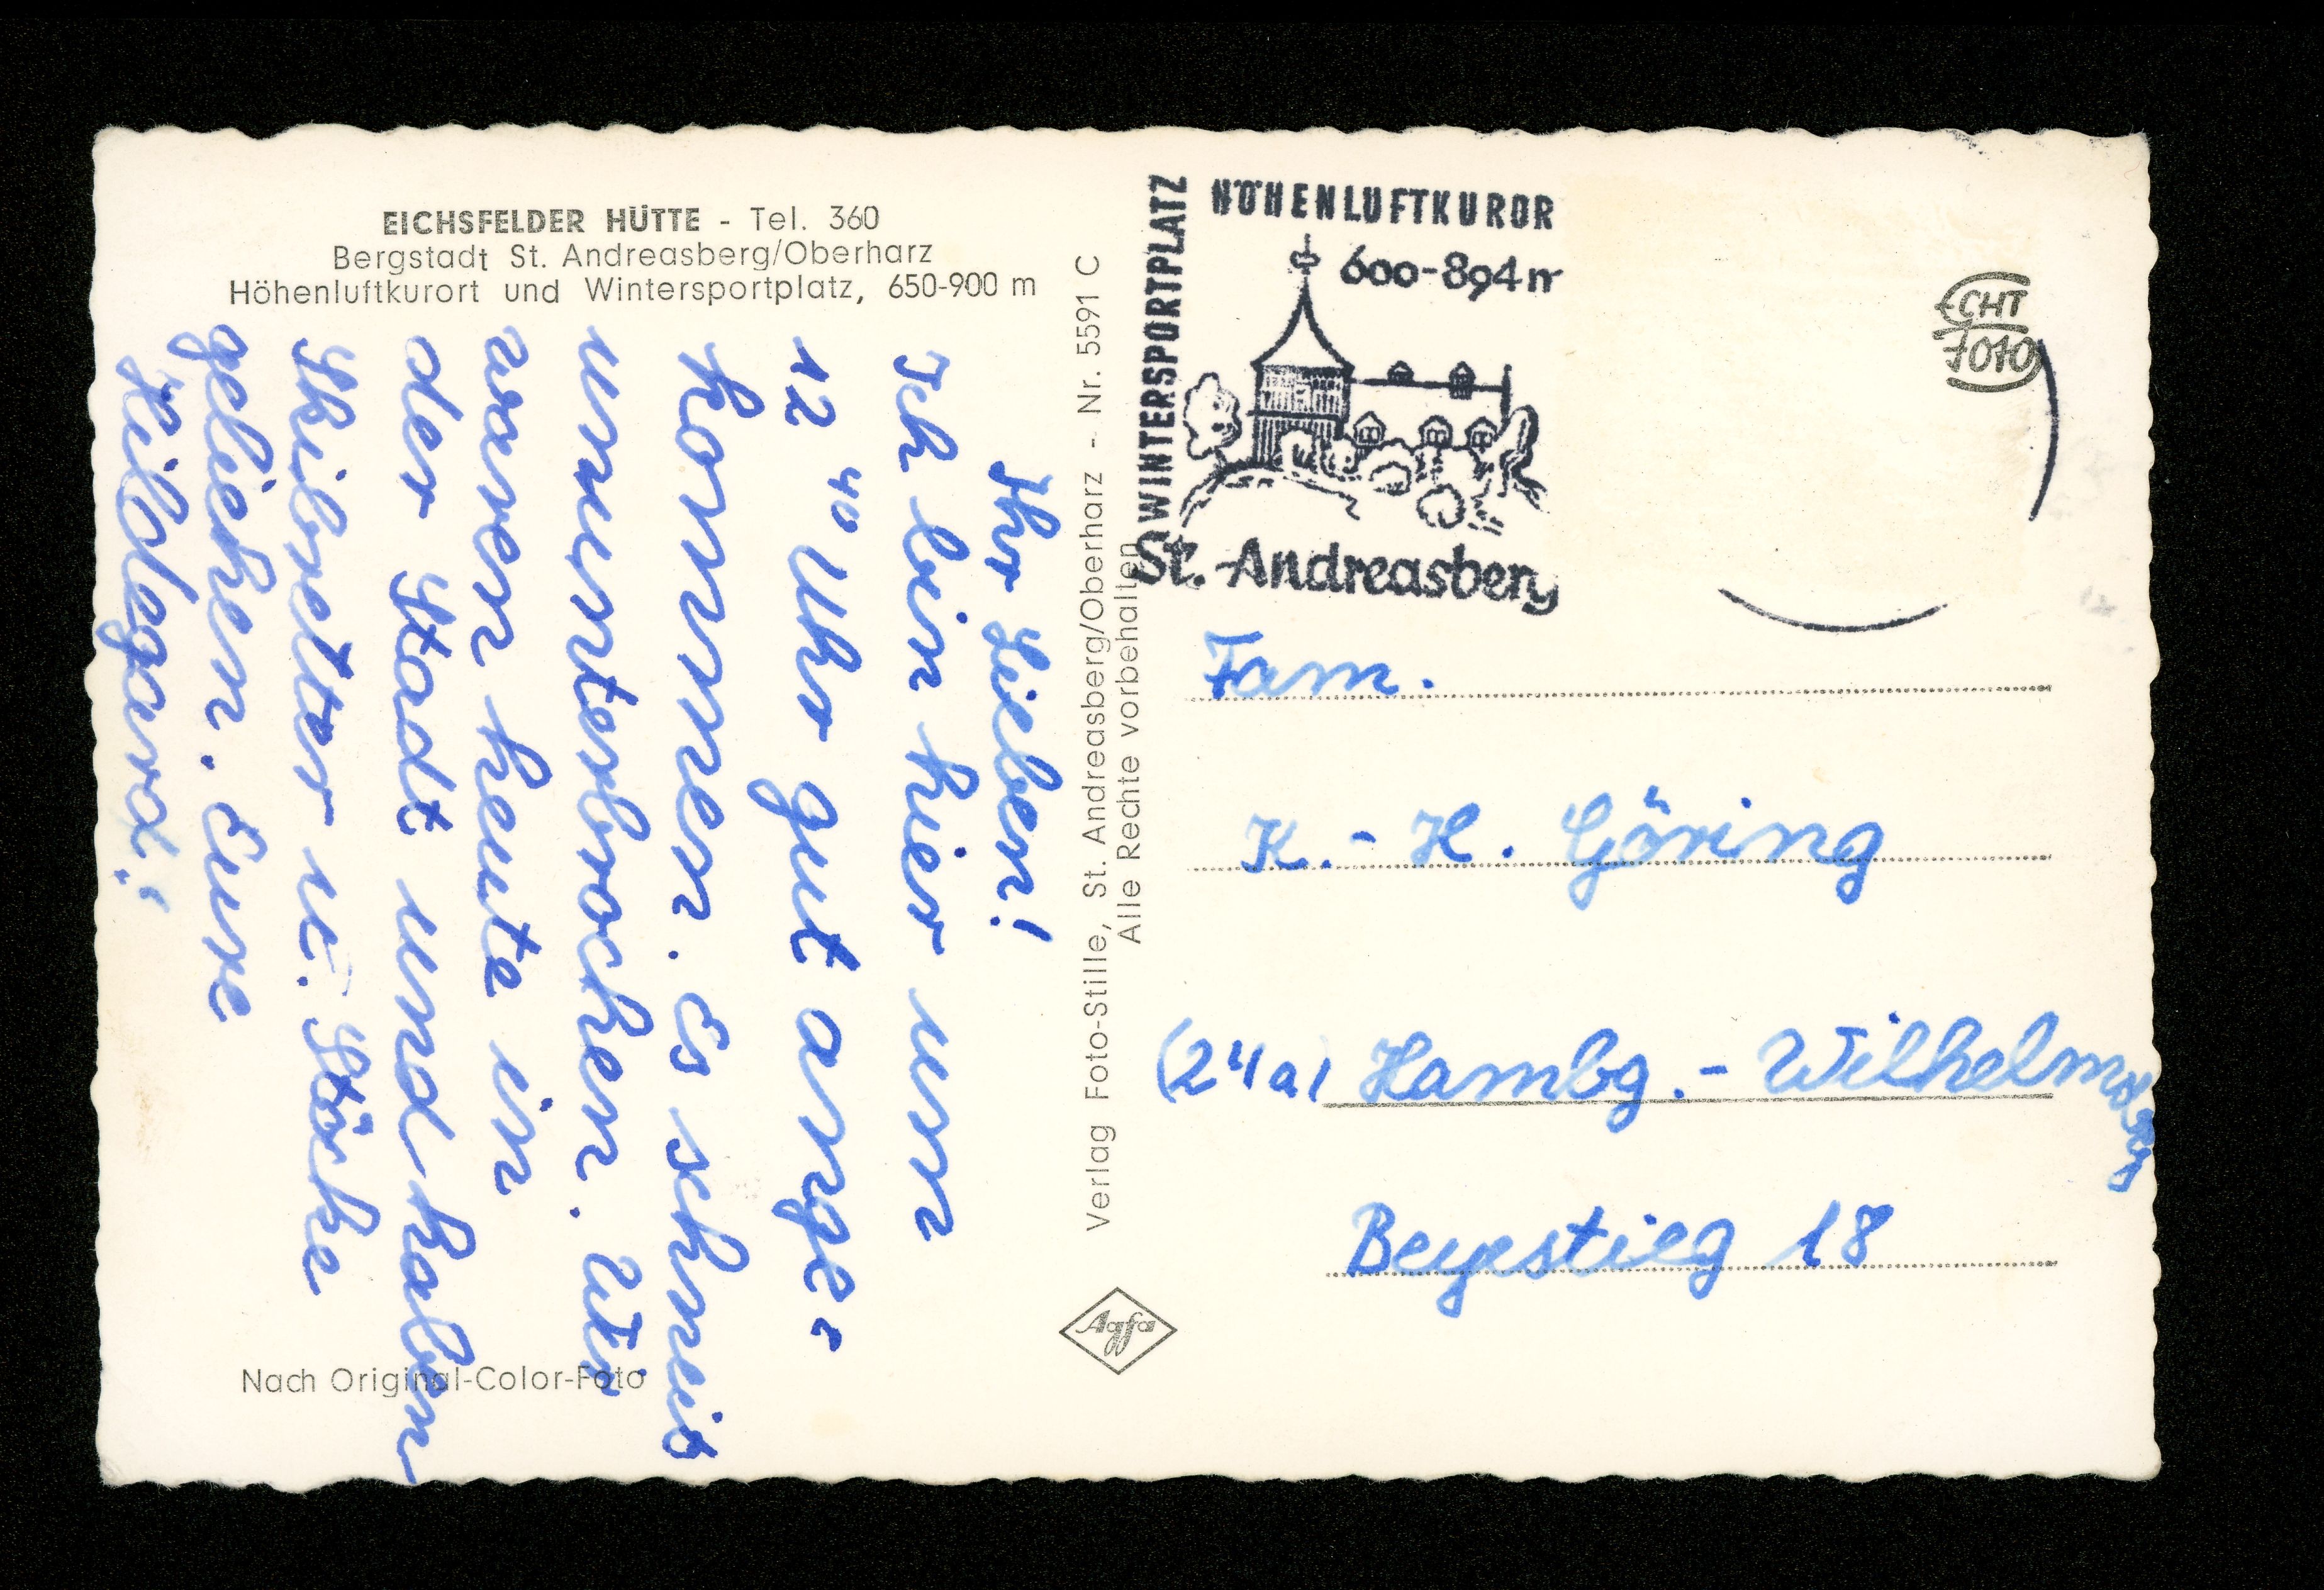 EICHSFELDER HÜTTE - Tel. 360
Bergstadt St. Andreasberg/Oberharz
Höhenluftkurort und Wintersportplatz, 650-900 m
Ihr Lieben!
Ich bin hier um
12 40 Uhr gut ange-
kommen. Es schneit
ununterbrochen. Wir
waren heute in
der Stadt und haben
Skibretter u. Stöcke
geliehen. Eure
Hildegard!
Nach Original-Color-Foto
Verlag Foto-Stille, St. Andreasberg/Oberharz - Nr. 5591 C
Alle Rechte vorbehalten
Agfa
WINTERSPORTPLATZ
HÖHENLUFTKUROR
600-894 m
St. Andreasberg
ECHT
FOTO
Fam.
K.-H. Göring
(24a) Hambg.-Wilhelmsbg
Beyestieg 18